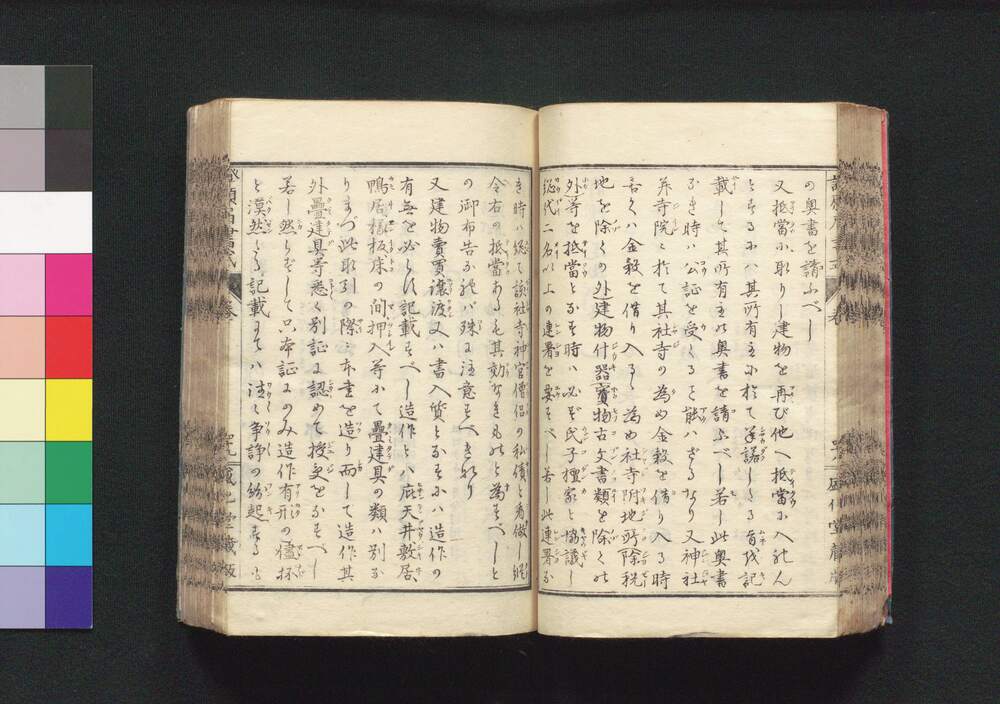 の奥書を請ふべし
又抵當に取りし建物を再び他へ抵當に入れん
とするにハ其所有主に於て承諾しる旨を記
載して其所有主の奥書を請ふべし若し此奥書
なき時ハ公証を受くること能ハざるなり又神社
并寺院に於て其社寺の為め金穀を借り入る時
若くハ金穀を借り入るゝ為め社寺附地所除税
地を除くの外建物什器寳物古文書類を除くの
外等を抵當となす時ハ必ず氏子檀家と協議し
総代二名以上の連署を要すべし若し此連署な
き時ハ総て該社寺神官僧侶の私債と看做し縦
令右の抵當あるも其効なきものと為すべしと
の御布告な れバ殊に注意すべきなり
又建物賣買譲渡又ハ書入質となすにハ造作の
有無を必しに記載すべし造作とハ庇天井敷居
鴨居椽板床の間押入等にて疊建具の類ハ別な
りまづ此取引の際に本書を造り而して造作其
外疊建具等悉く別証に認めて授受をなすべし
若し然らずして只本証にのみ造作有形の儘抔
と漠然る記載すてハ往々争諍の紛起する